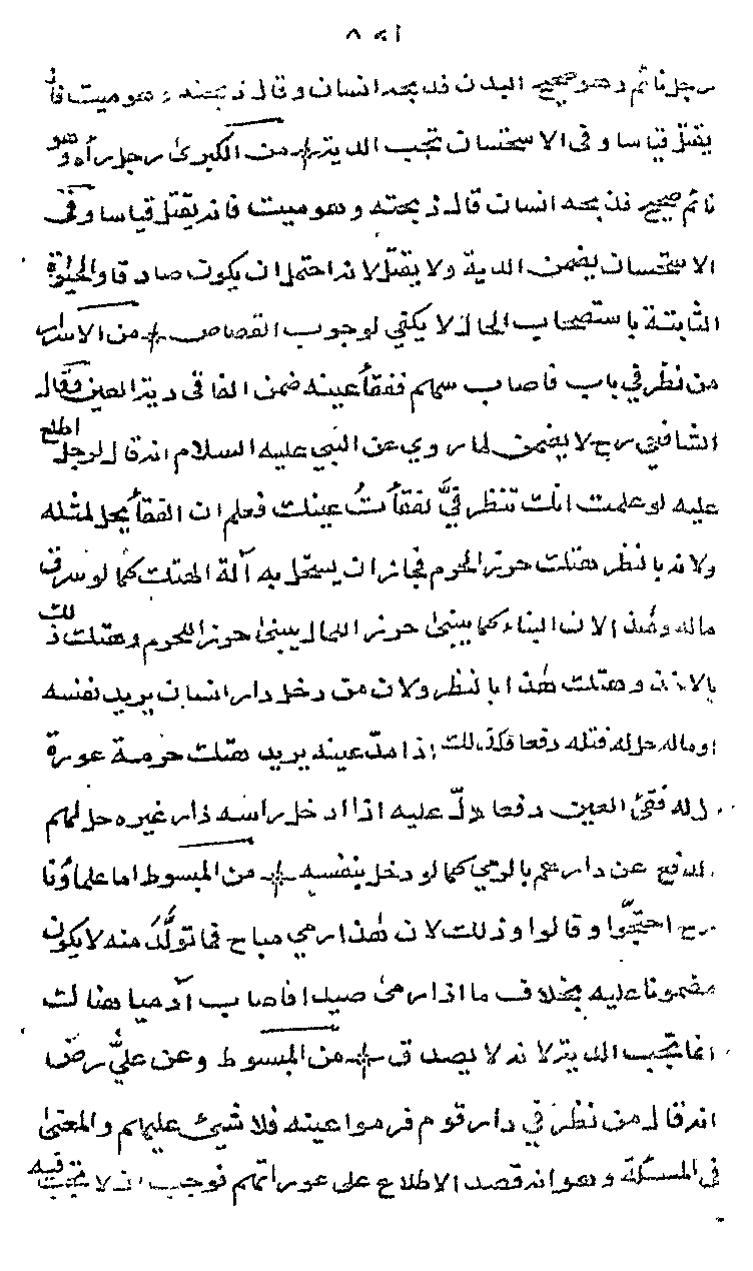 رجل نائم وهو صحيح البدن فذبحه انسان وقال ذبحته وهو ميت فانه
يقتل قياسا وفى الاستحسان تجب الدية من الكبرى رجل رأه وهو
نائم صحيح فذبحه انسان قال ذبحته وهو ميت فانه يقتل قياسا وفى
الاستحسان يضمن الدية ولا يقتل لانه احتمل ان يكون صادقا والحيوة
الثابتة باستصحاب الحال لا يكفي لوجوب القصاص من الاسرار
من نظر في باب فاصاب سهم ففقأ عينه ضمن الفاقى دية العين وقال
الشافعي رح لا يضمن لما روي عن النبي عليه السلام انه قال لرجل اطلع
عليه لو علمت انك تنظر فيَّ لفقأتُ عينك فعلم ان الفقأ يحل لمثله
ولانه بالنظر هتك حرز الحرم فجاز ان يستحل به آلة الهتك كما لو سرق
ماله وهذا لان البناء كما يبنى حرز المال يبنى حرز الحرم وهتك ذلك
بالاذن وهتك هذا بالنظر ولان من دخل دار انسان يريد نفسه
او ماله حل له قتله دفعا فكذلك اذا مدّ عينه يريد هتك حرمة عورة
له فقئ العين دفعا دلّ عليه اذا ادخل راسه دار غيره حل لهم
الدفع عن دارهم بالرمي كما لو دخل بنفسه من المبسوط اما علماؤنا
رح احتجّوا وقالوا وذلك لان هذا رمي مباح فما تولَّدَ منه لا يكون
مضمونا عليه بخلاف ما اذا رمى صيدا فاصاب آدميا هنالك
انما تجب الدية لانه لا يصدق من المبسوط وعن عليّ رض
انه قال من نظر في دار قوم فرموا عينه فلا شيئ عليهم والمعنى
في المسئلة وهو انه قصد الاطلاع على عوراتهم فوجب ان لا تجب فيه